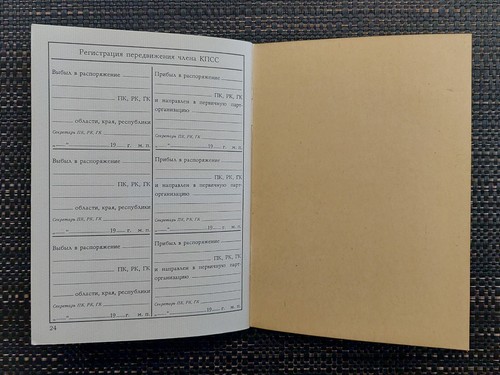 Регистрация передвижения члена КПСС
Выбыл в распоряжение
ПК, РК, ГК
области, края, республики
Секретарь ПК, РК, ГК
„ “ 19 г. м. п.
Прибыл в распоряжение
ПК, РК, ГК
и направлен в первичную парт-
организацию
Секретарь ПК, РК, ГК
„ “ 19 г. м. п.
Выбыл в распоряжение
ПК, РК, ГК
области, края, республики
Секретарь ПК, РК, ГК
„ “ 19 г. м. п.
Прибыл в распоряжение
ПК, РК, ГК
и направлен в первичную парт-
организацию
Секретарь ПК, РК, ГК
„ “ 19 г. м. п.
Выбыл в распоряжение
ПК, РК, ГК
области, края, республики
Секретарь ПК, РК, ГК
„ “ 19 г. м. п.
Прибыл в распоряжение
ПК, РК, ГК
и направлен в первичную парт-
организацию
Секретарь ПК, РК, ГК
„ “ 19 г. м. п.
24